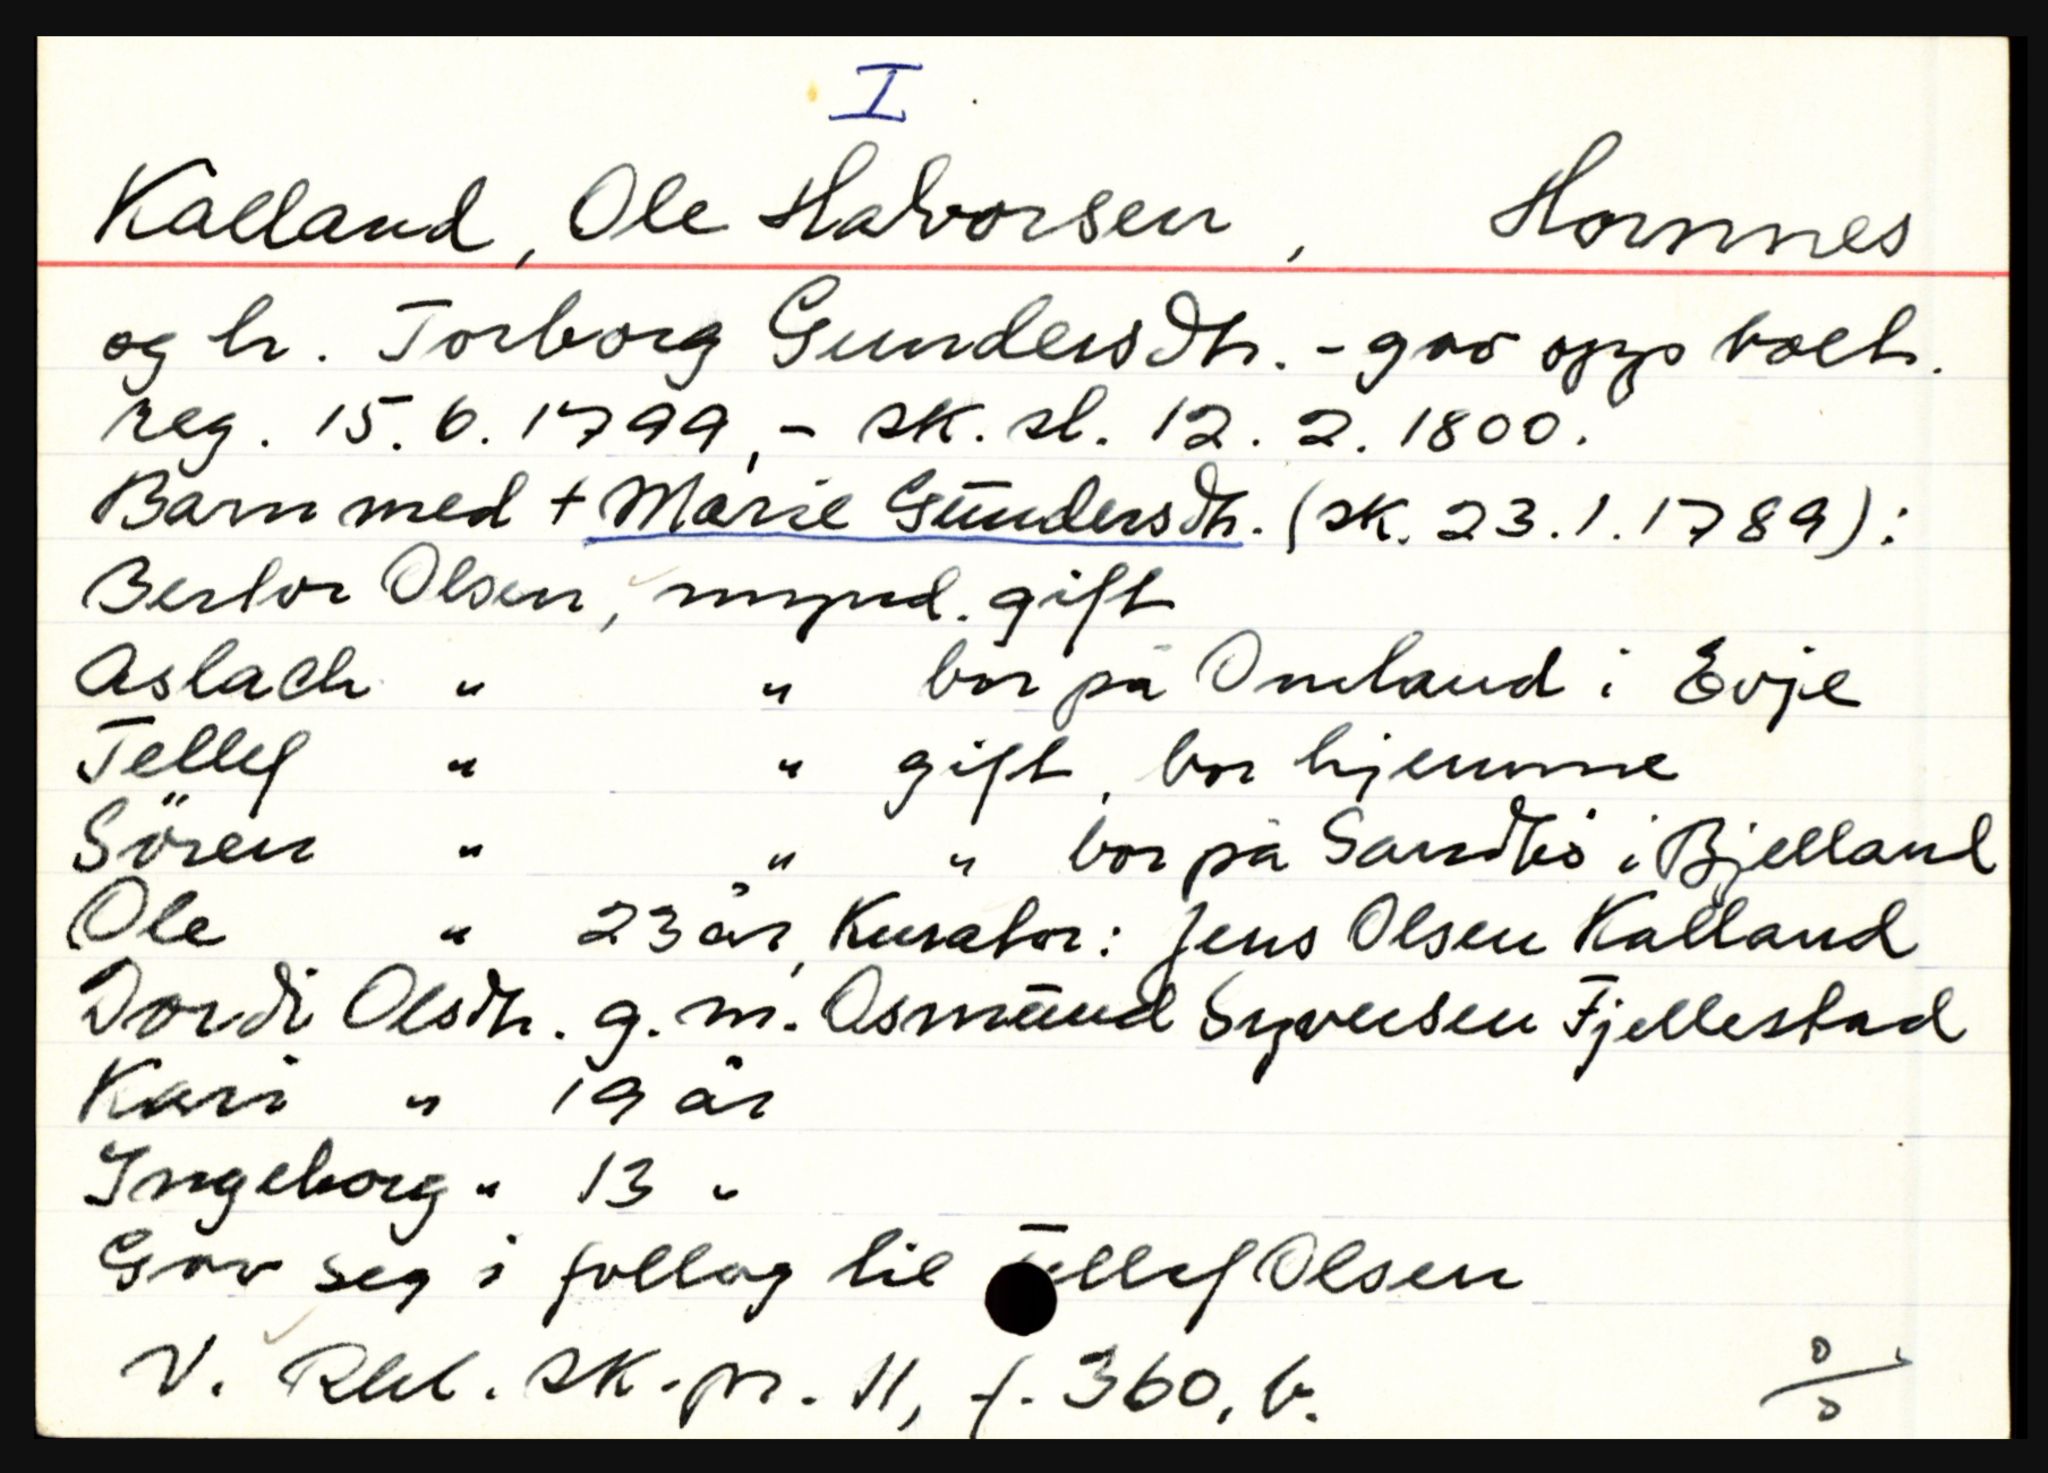 I
Kalland, Ole Halvorsen, Hornnes
og h. Torborg Gundersdtr. - gav opp boet.
reg. 15.6.1799, - sk. sl. 12.2.1800.
Barn med + Marie Gŭndersdtr. (sk. 23.1.1789):
Berthor Olsen, mynd. gift
Aslach " " bor på Omland i Evje
Tellef " " gift, bor hjemme
Sören " " " bor på i Bjelland
Ole " 23 år, Kurator: Jens Olsen Kalland
Dordi Olsdtr. g. m. Osmŭnd Syversen Fjellestad
Kari " 19 år
Ingeborg " 13 "
Gav seg i follog til Tellef Olsen
V. Rbl. sk.pr. 11, f. 360, b.
0/0